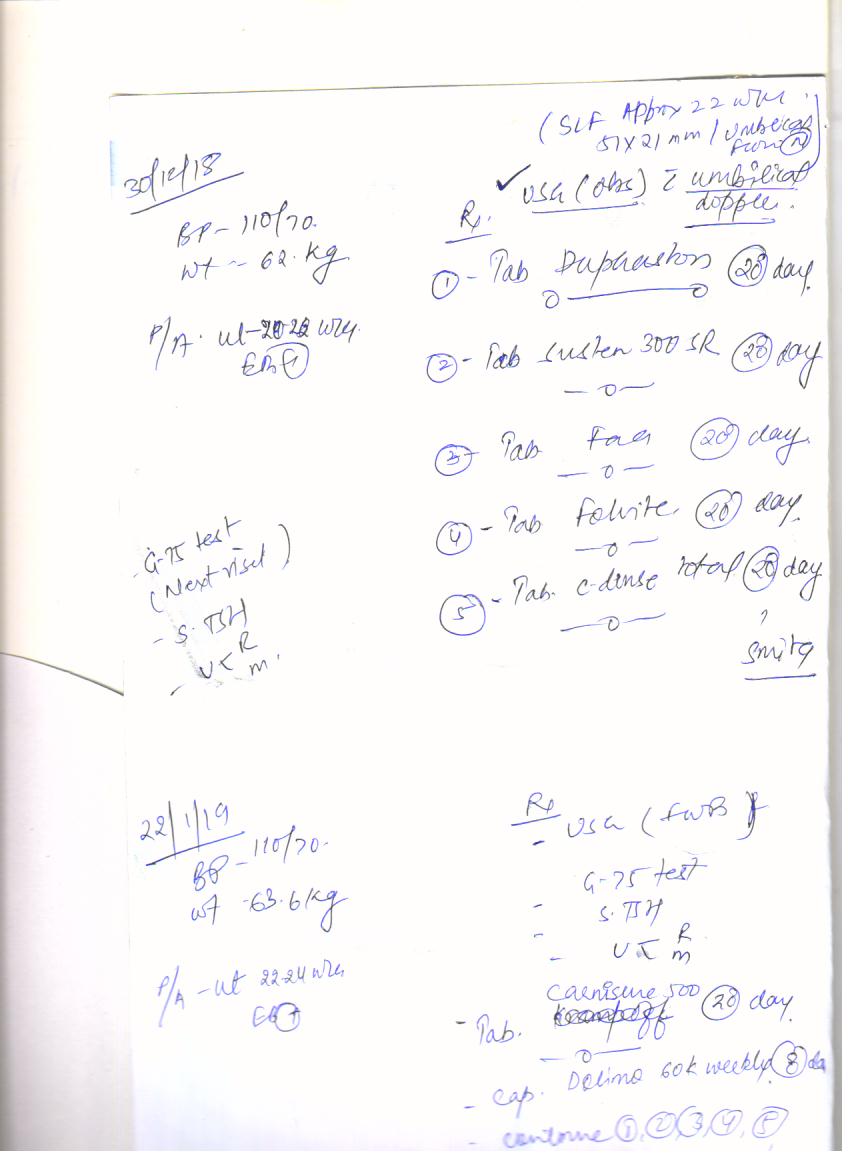 (SLF Approx 22 wks
51x21 mm / Umbilical
30/12/18
✓ USG (obs) c̄ umbilical
doppler.
BP - 110/70.
Wt - 62. kg
Rx.
① - Tab Duphaston 28 day
P/A. ut - 20-22 wks.
② - Tab Susten 300 SR 28 day
③ - Tab 28 day.
④ - Tab Folvite 28 day
G-75 test
(Next visit)
- S. TSH
- U < R
M.
⑤ - Tab. C-dense total 28 day
Smita
22/1/19
BP - 110/70.
Wt - 63.6 kg
Rx
- USG (FWB)
G-75 test
- S. TSH
- U < R
M
P/A - ut 22-24 wks
- Tab. 500 28 day
- Cap. 60K weekly 8
- continue ①, ②, ③, ④, ⑤